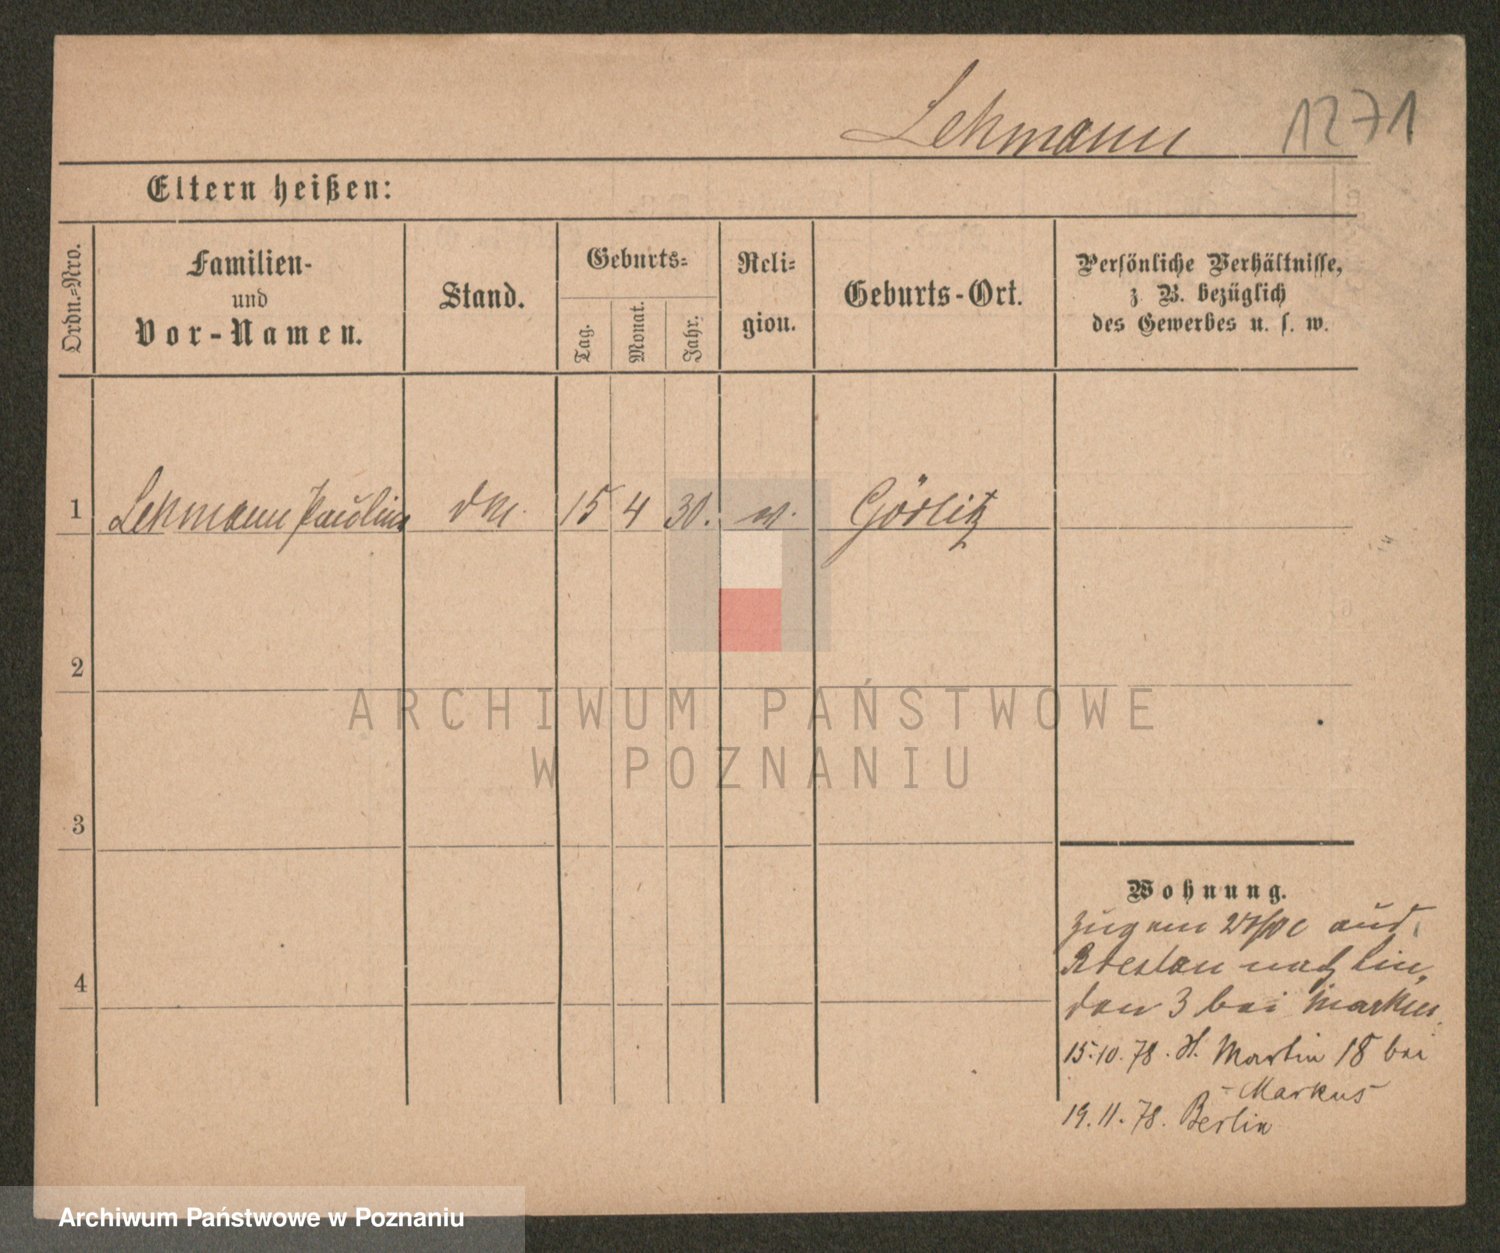 Lehmann 1271
Eltern heißen:
Ordn.-Nro.
Familien-
und
Vor-Namen.
Stand.
Geburts-
Tag.
Monat.
Jahr.
Reli-
gion.
Geburts-Ort.
Persönliche Verhältnisse,
z. B. bezüglich
des Gewerbes u. s. w.
1 Lehmann Pauline 15 4 30. Görlitz
2
ARCHIWUM PAŃSTWOWE
W POZNANIU
3
Wohnung.
zug am aus
Breslau nach Lin,
den 3 bei Markus
4
15.10.78. St. Martin 18 bei
Markus
19.11.78. Berlin
Archiwum Państwowe w Poznaniu